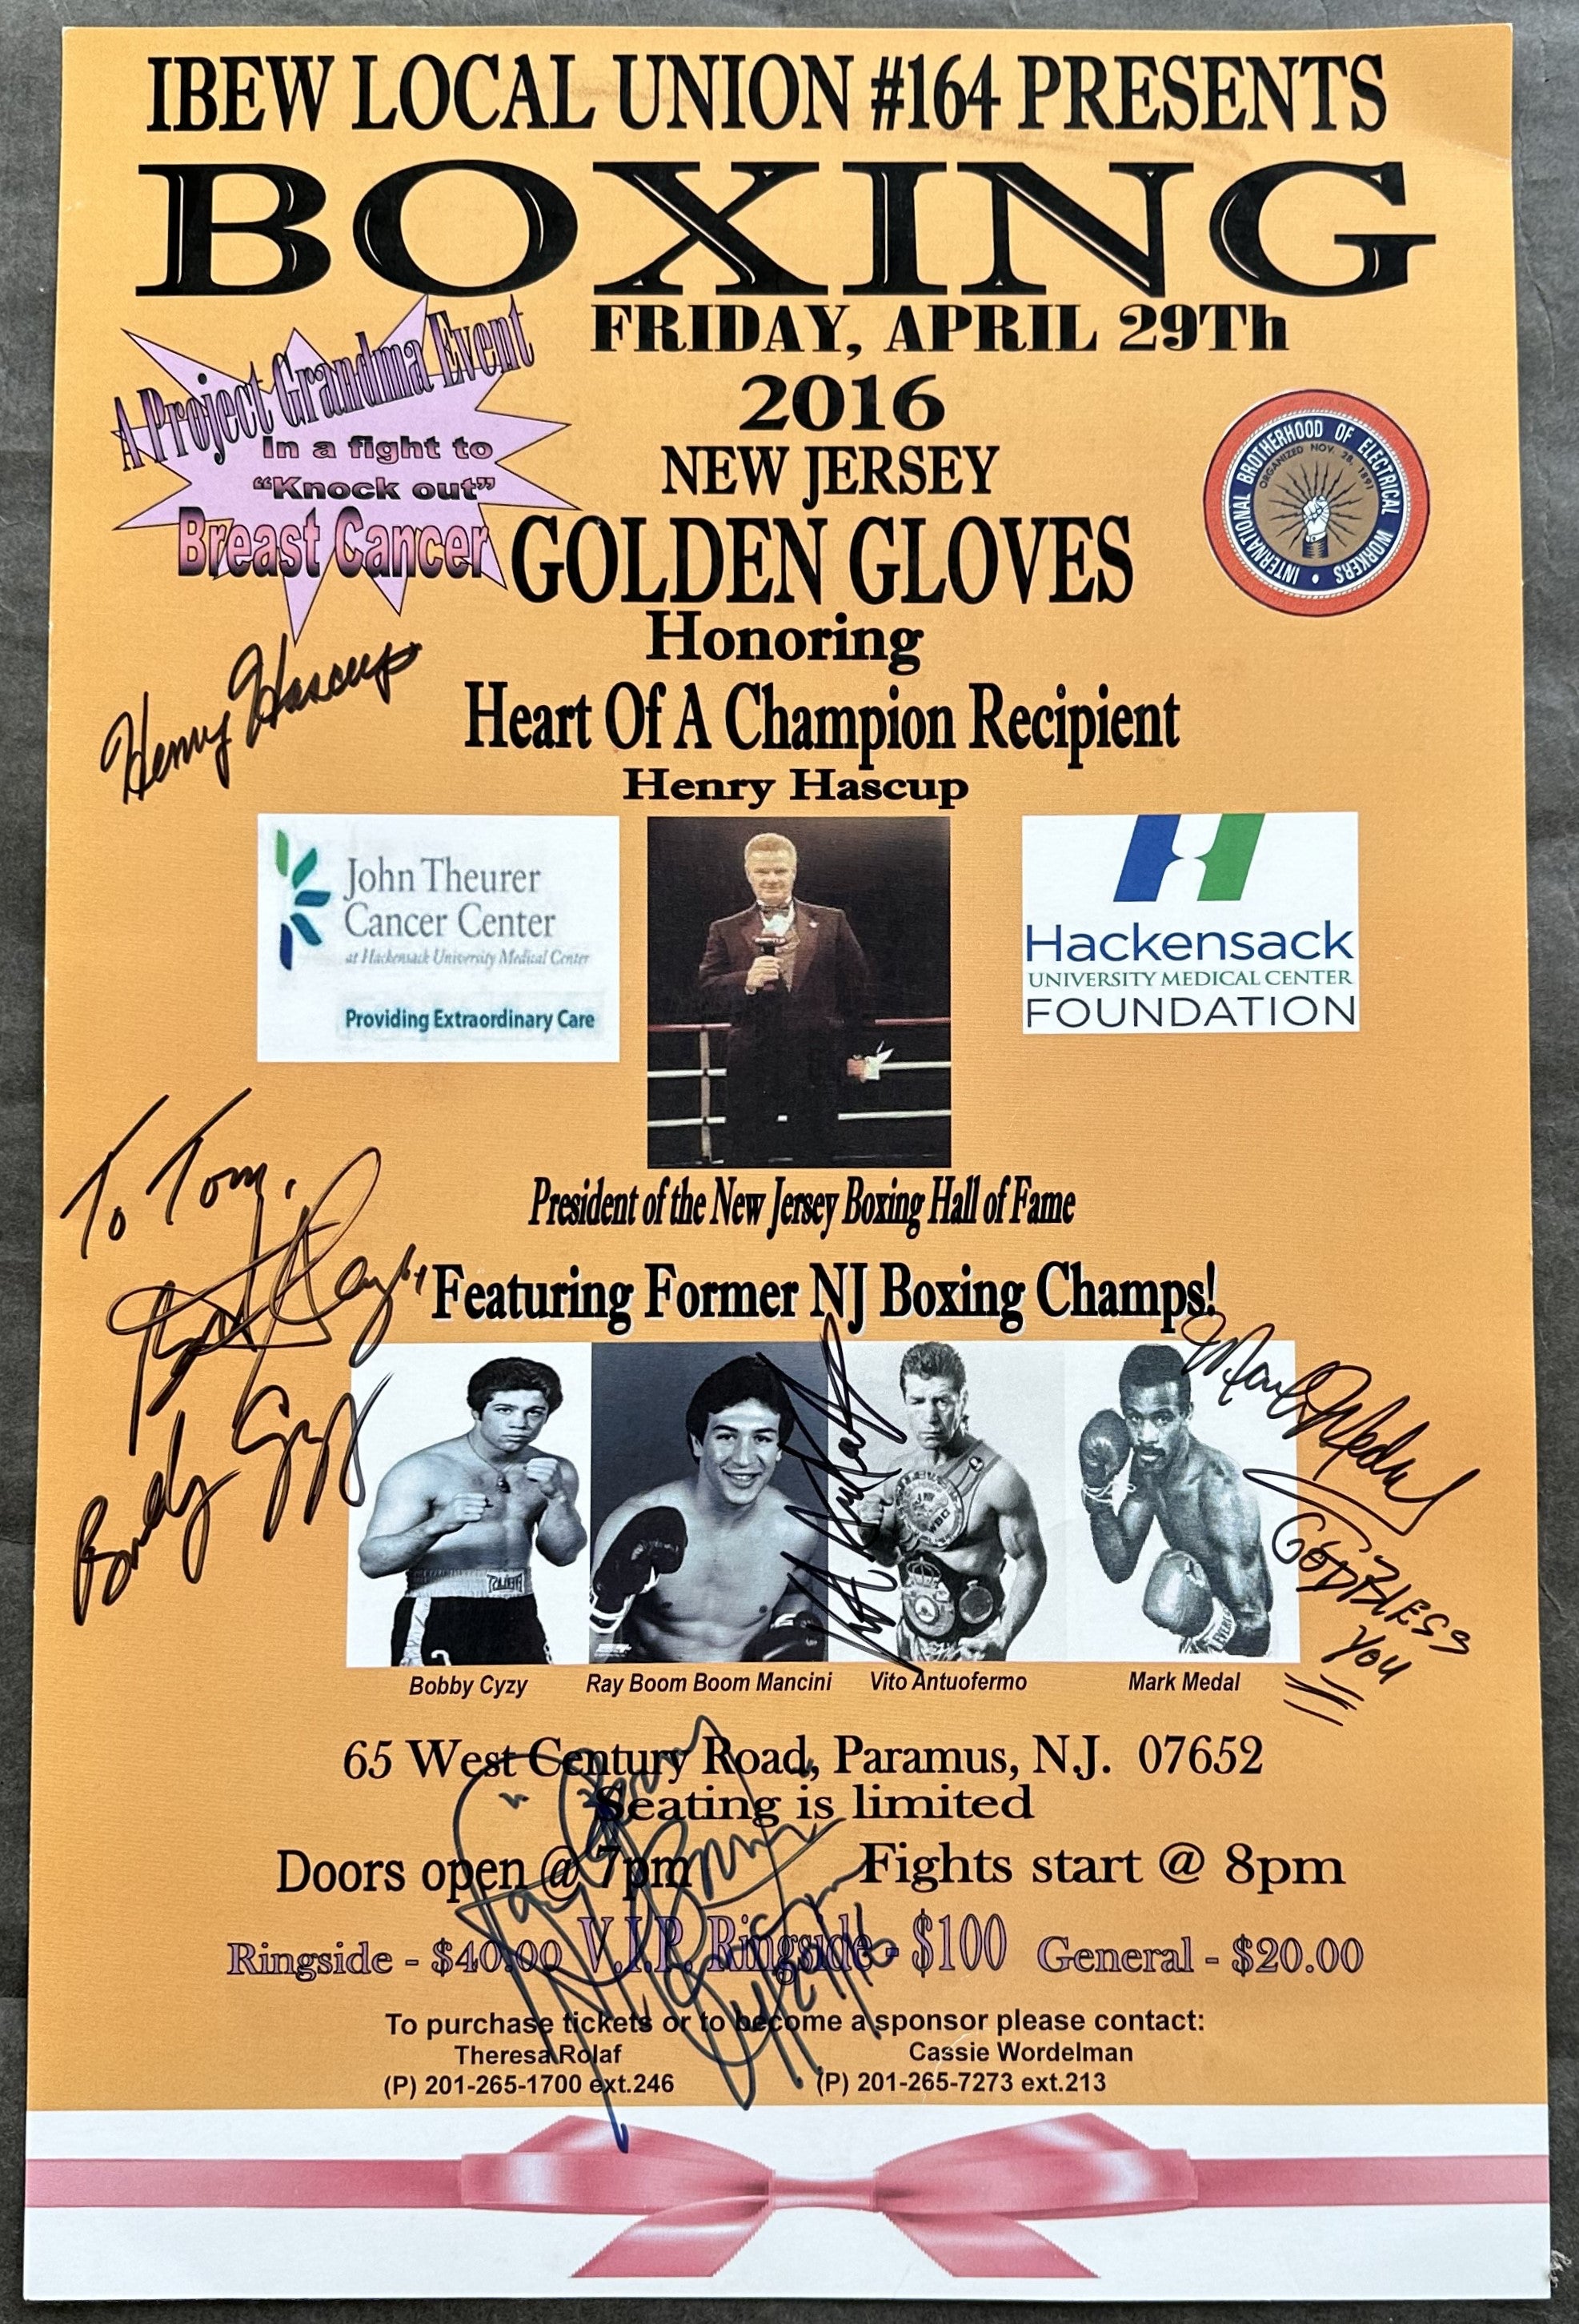 IBEW LOCAL UNION #164 PRESENTS
BOXING
FRIDAY, APRIL 29Th
2016
NEW JERSEY
GOLDEN GLOVES
A Project Grandma Event
In a fight to
“Knock out”
Breast Cancer
INTERNATIONAL BROTHERHOOD OF ELECTRICAL WORKERS
ORGANIZED NOV. 28, 1891
Honoring
Heart Of A Champion Recipient
Henry Hascup
Henry Hascup
John Theurer
Cancer Center
at Hackensack University Medical Center
Providing Extraordinary Care
Hackensack
UNIVERSITY MEDICAL CENTER
FOUNDATION
President of the New Jersey Boxing Hall of Fame
To Tom,
Featuring Former NJ Boxing Champs!
Mark Medal
GODBLESS
YOU
WBC
Bobby Cyzy
Ray Boom Boom Mancini
Vito Antuofermo
Mark Medal
65 West Century Road, Paramus, N.J. 07652
Seating is limited
Doors open @ 7pm
Fights start @ 8pm
Ringside - $40.00
V.I.P. Ringside - $100
General - $20.00
To purchase tickets or to become a sponsor please contact:
Theresa Rolaf
Cassie Wordelman
(P) 201-265-1700 ext.246
(P) 201-265-7273 ext.213